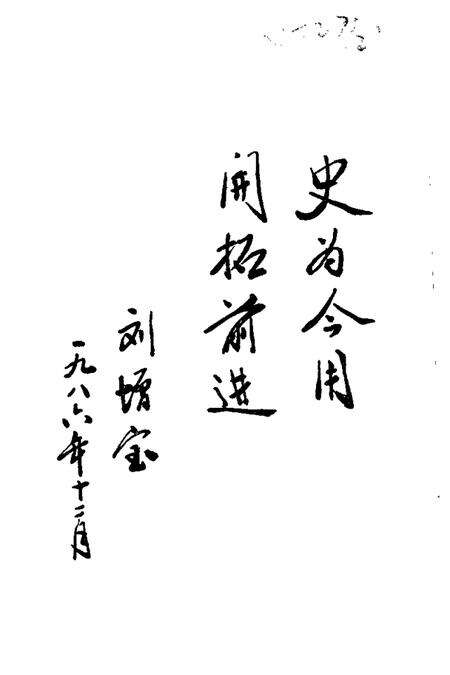 史为今用
开拓前进
刘增宝
一九八六年十二月